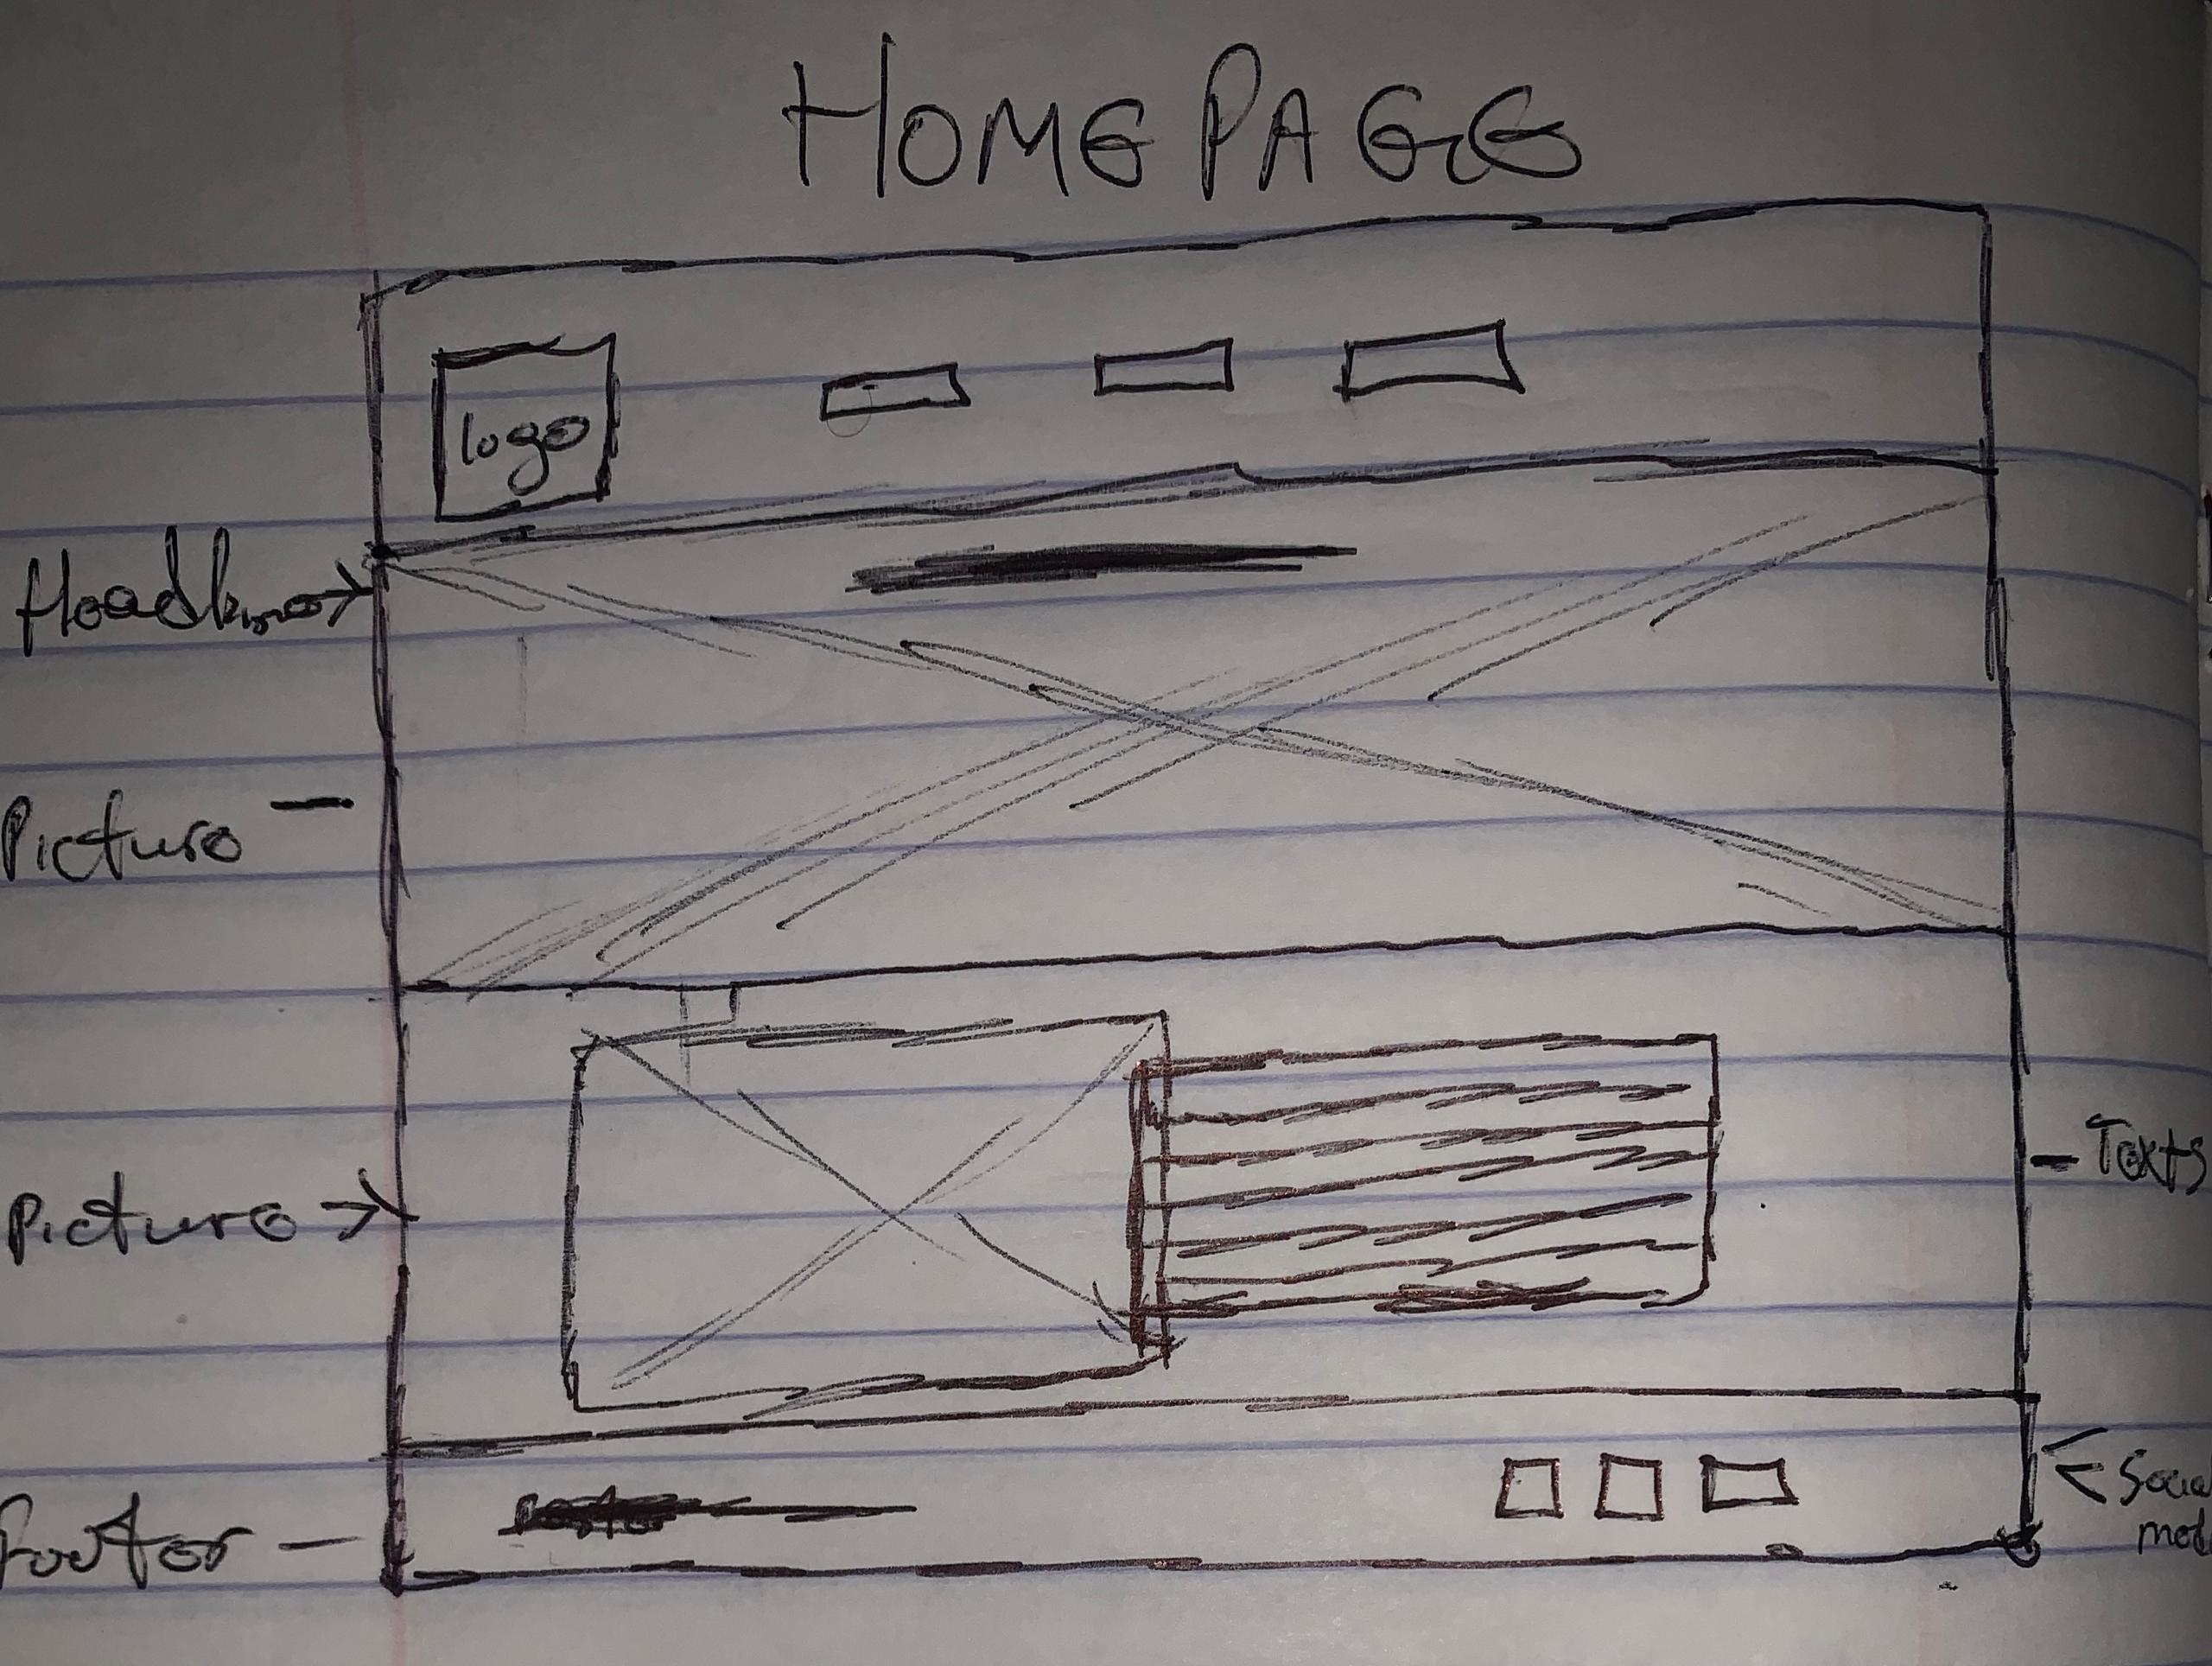 HOMEPAGE
logo
Headline
Picture
Picture
Texts
Footer
Social